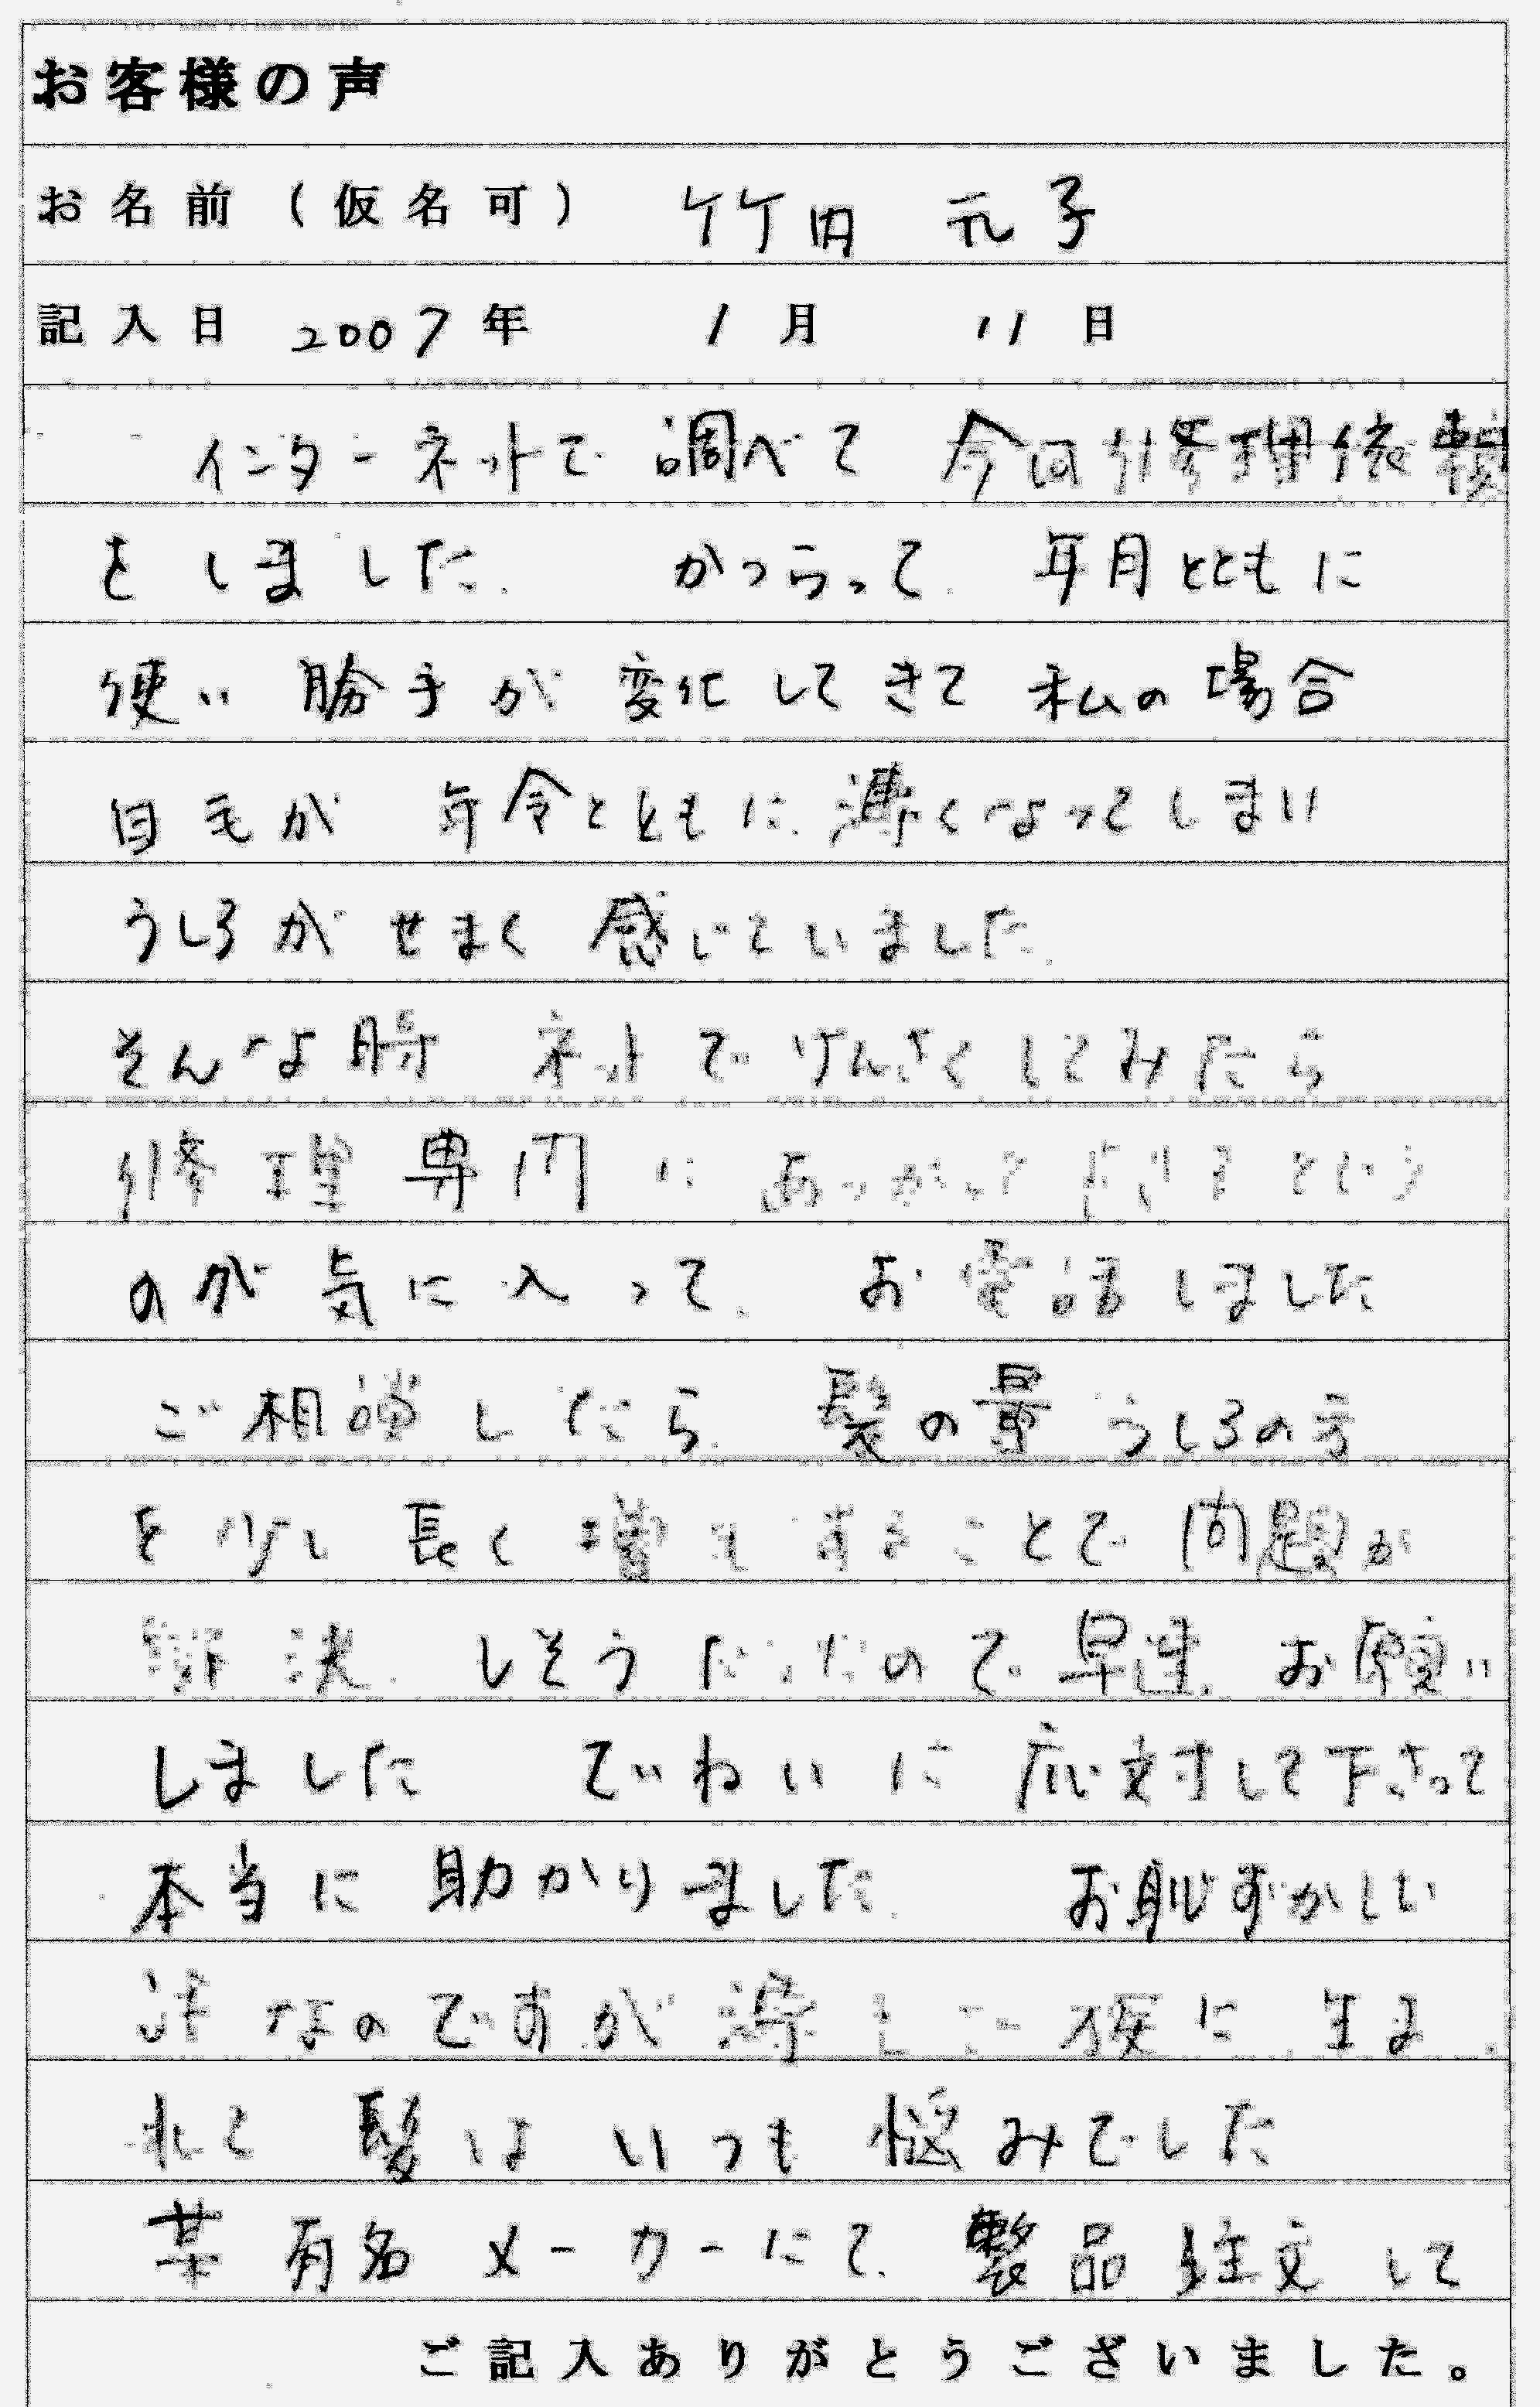 お客様の声
お名前(仮名可) 竹内 元子
記入日 2007年 1月 11日
インターネットで 調べて 今回修理依頼
をしました. かつらって. 年月とともに
使い勝手が変化してきて 私の場合
自毛が 年令とともに薄くなってしまい
うしろが せまく感じていました.
そんな時 ネットで けんさくしてみたら
修理専門に あつかって だけるという
のが気に入って. お電話しました
ご相談したら. 髪の量 うしろの方
を少し長く増毛することで 問題が
解決しそうだったので早速. お願い
しました ていねいに 応対して下さって
本当に助かりました. お恥ずかしい
話なのですが 薄 家族に 生ま
れて 髪は いつも 悩みでした
某有名メーカーにて. 製品注文して
ご記入ありがとうございました。